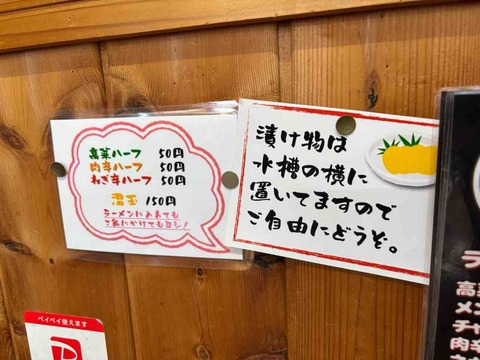 高菜ハーフ 50円
肉辛ハーフ 50円
ねぎ辛ハーフ 50円
温玉 150円
ラーメンに入れても
ご飯にかけてもヨシ!
漬け物は
水槽の横に
置いてますので
ご自由にどうぞ。
ペイペイ使えます
高菜
メン
チャ
肉辛